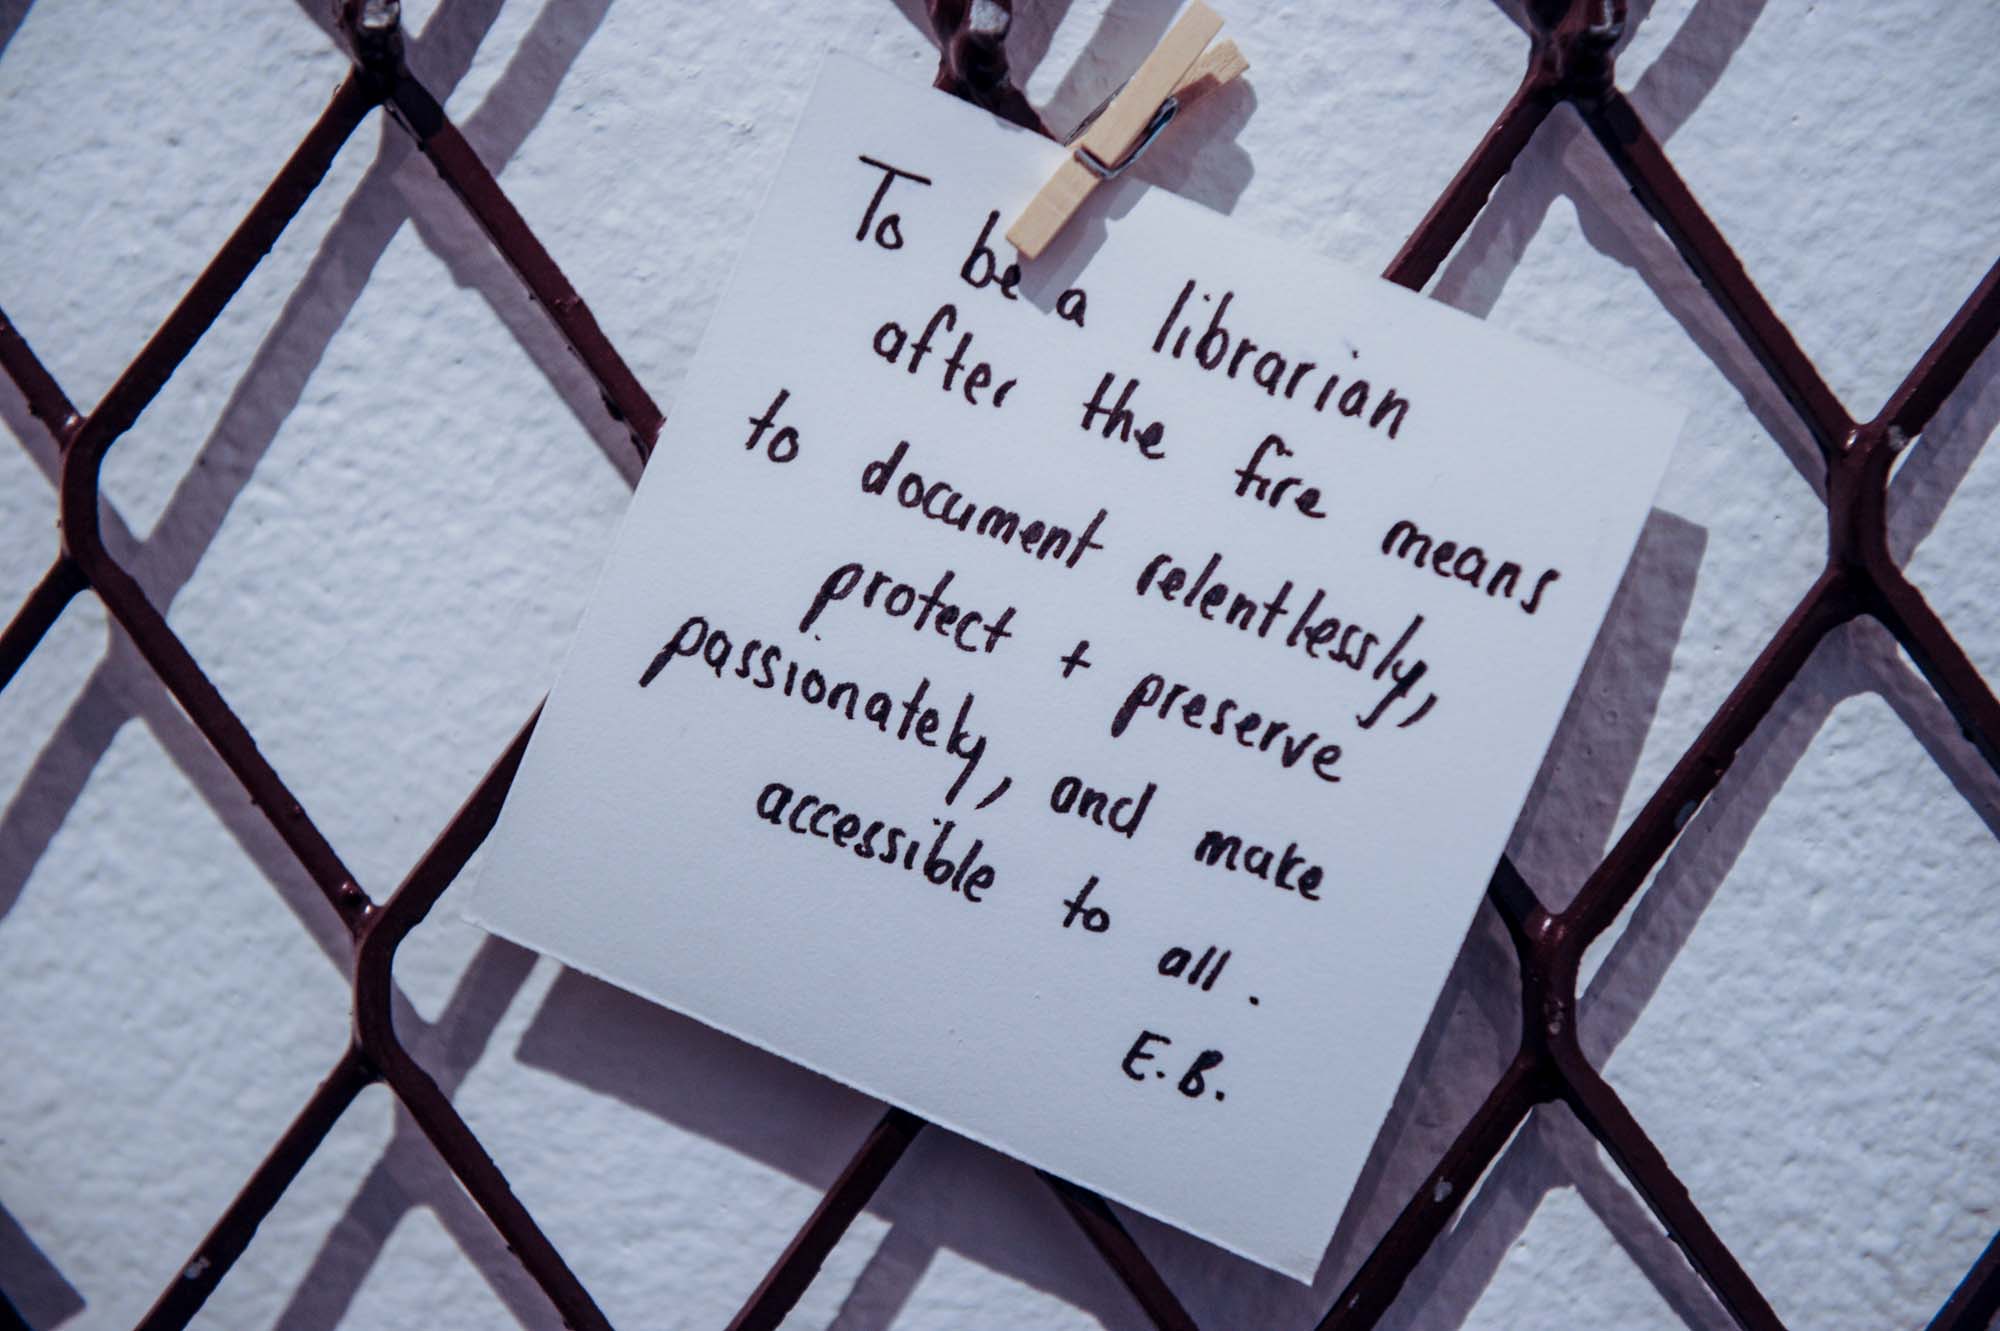 To be a librarian
after the fire means
to document relentlessly,
protect + preserve
passionately, and make
accessible to all.
E.B.